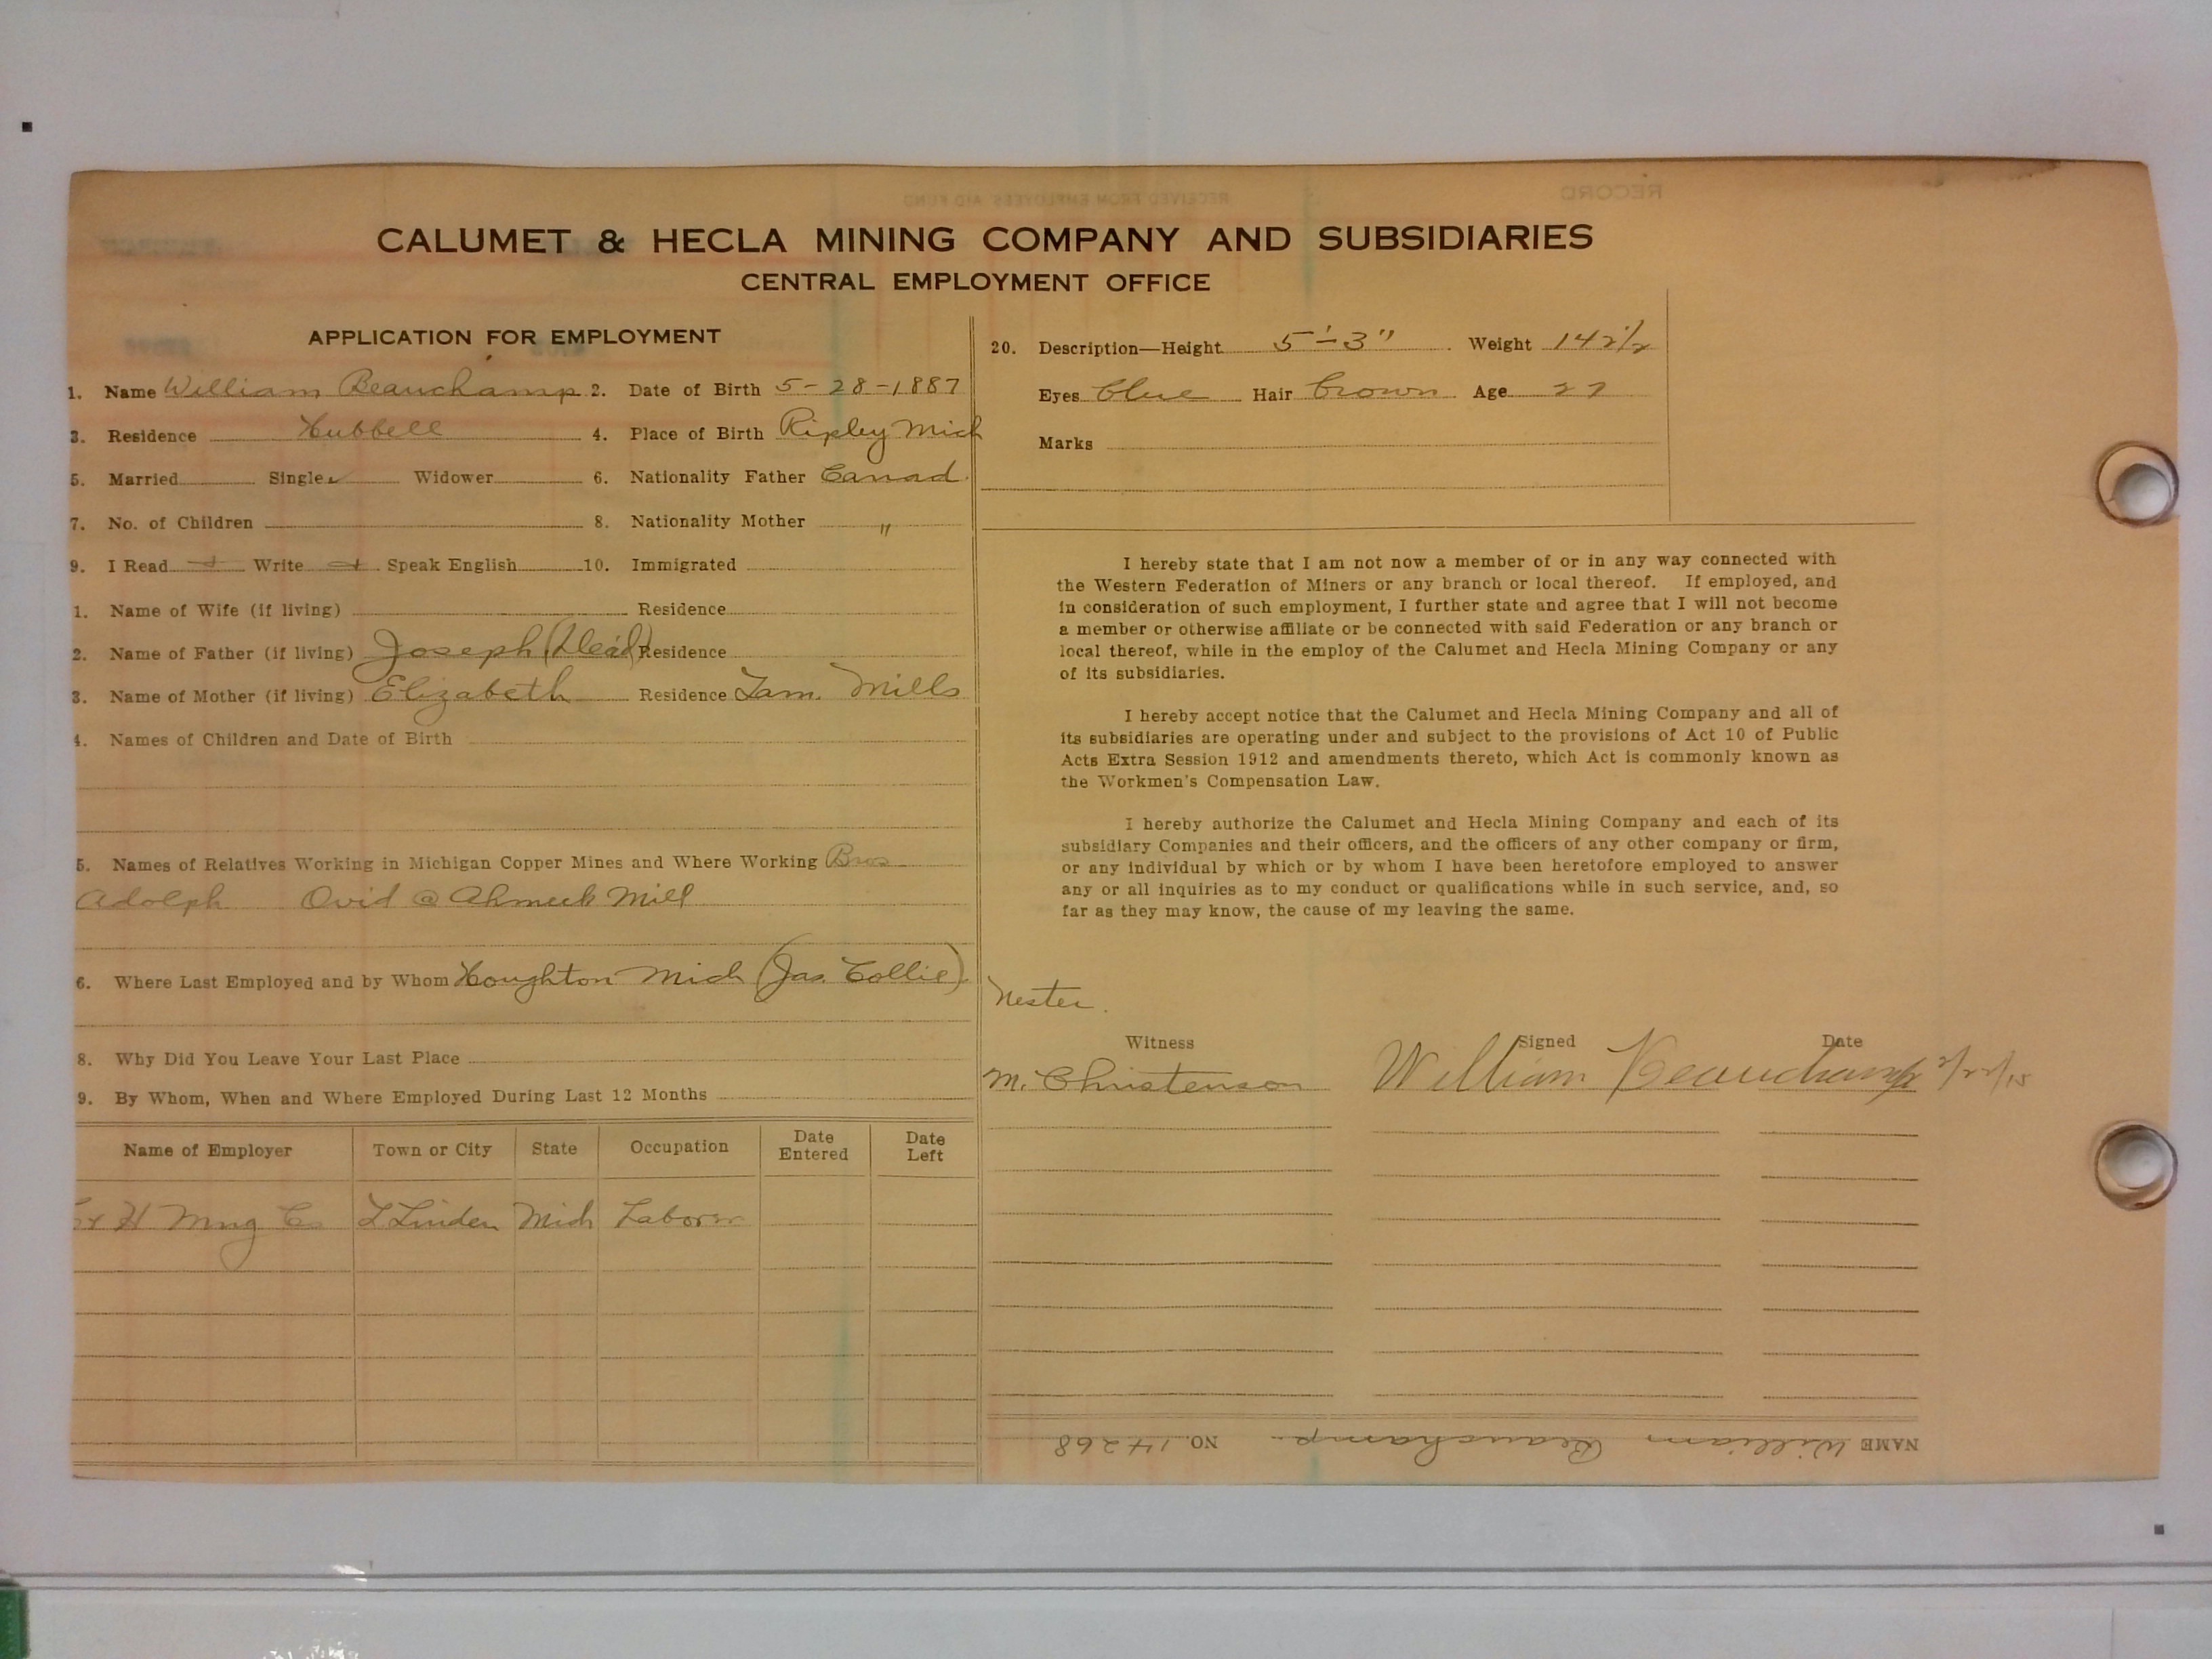 RECEIVED FROM EMPLOYEES AID FUND
RECORD
CALUMET & HECLA MINING COMPANY AND SUBSIDIARIES
CENTRAL EMPLOYMENT OFFICE
APPLICATION FOR EMPLOYMENT
1. Name William Beauchamp 2. Date of Birth 5-28-1887
3. Residence Hubbell 4. Place of Birth Ripley Mich
5. Married Single Widower 6. Nationality Father Canad.
7. No. of Children 8. Nationality Mother "
9. I Read Write Speak English 10. Immigrated
1. Name of Wife (if living) Residence
2. Name of Father (if living) Joseph (Dead) Residence
3. Name of Mother (if living) Elizabeth Residence Tam. Mills
4. Names of Children and Date of Birth
5. Names of Relatives Working in Michigan Copper Mines and Where Working Bros
Adolph Ovid @ Ahmeek Mill
6. Where Last Employed and by Whom Houghton Mich (Jas. Collie)
8. Why Did You Leave Your Last Place
9. By Whom, When and Where Employed During Last 12 Months
Name of Employer Town or City State Occupation Date Entered Date Left
H Mng Co L Linden Mich Laborer
20. Description—Height 5'-3" Weight 142 1/2
Eyes blue Hair brown Age 27
Marks
I hereby state that I am not now a member of or in any way connected with
the Western Federation of Miners or any branch or local thereof. If employed, and
in consideration of such employment, I further state and agree that I will not become
a member or otherwise affiliate or be connected with said Federation or any branch or
local thereof, while in the employ of the Calumet and Hecla Mining Company or any
of its subsidiaries.
I hereby accept notice that the Calumet and Hecla Mining Company and all of
its subsidiaries are operating under and subject to the provisions of Act 10 of Public
Acts Extra Session 1912 and amendments thereto, which Act is commonly known as
the Workmen's Compensation Law.
I hereby authorize the Calumet and Hecla Mining Company and each of its
subsidiary Companies and their officers, and the officers of any other company or firm,
or any individual by which or by whom I have been heretofore employed to answer
any or all inquiries as to my conduct or qualifications while in such service, and, so
far as they may know, the cause of my leaving the same.
Nester.
Witness Signed Date
M. Christenson William Beauchamp
NAME William Beauchamp. NO. 14268